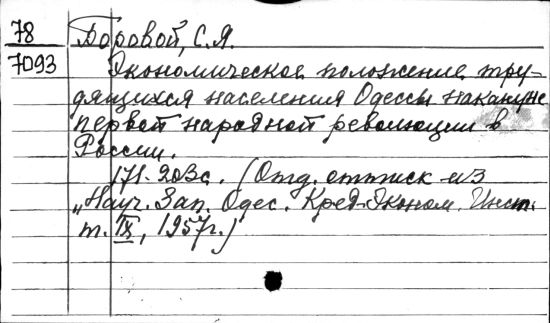 78
7093
Боровой, С.Я.
Экономическое положение тру-
дящихся населения Одессы накануне
первой народной революции в
России.
171-203с. (Отд. оттиск из
„Науч. Зап. Одес. Кред-Эконом. Инст.
т. IX, 1957г.)